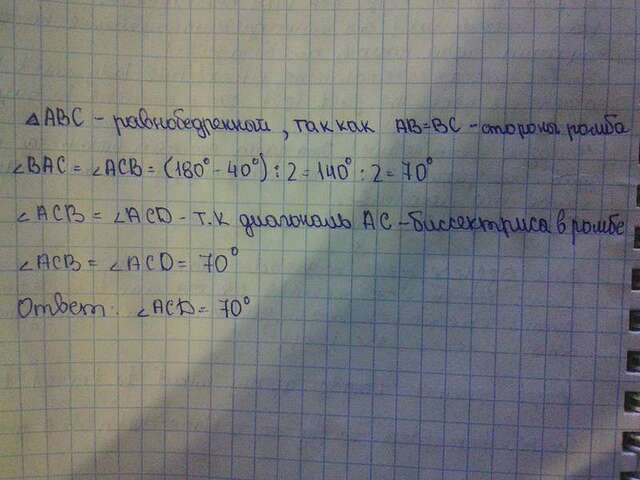 △ABC - равнобедренный, так как AB=BC - стороны ромба
∠BAC = ∠ACB = (180° - 40°) : 2 = 140° : 2 = 70°
∠ACB = ∠ACD - т.к диагональ AC - биссектриса в ромбе
∠ACB = ∠ACD = 70°
Ответ: ∠ACD = 70°